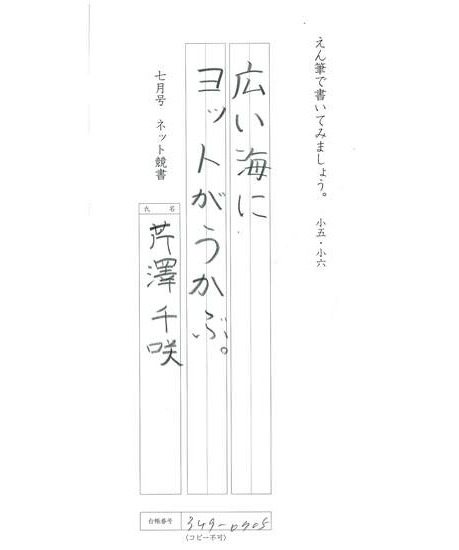 えん筆で書いてみましょう。 小五・小六
広い海に
ヨットがうかぶ。
七月号 ネット競書
氏名
芹澤千咲
台帳番号 349-0905
(コピー不可)